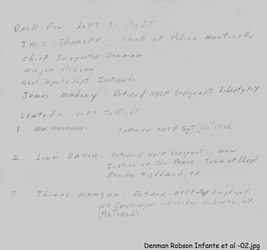 Back Row Left To Right
Jack Thoroff - Chief of Police Monticello
Chief Inspector Denman
Major Robson
Next Deputy Supt. Infante
James Mahony - Retired NYSP Sergeant - Liberty, NY
Seated - Left To Right
1 Wm - Former NYSP Sgt (Retired
2 Linn Baker - Retired NYSP Sergeant - Now
Justice of the Peace Town of Lloyd
Resides Highland, NY
3 Thomas Mangan - Retired NYSP Sgt Employed
At Grossinger - Resides Liberty, NY
(Retired)
Denman Robson Infante et al -02.jpg